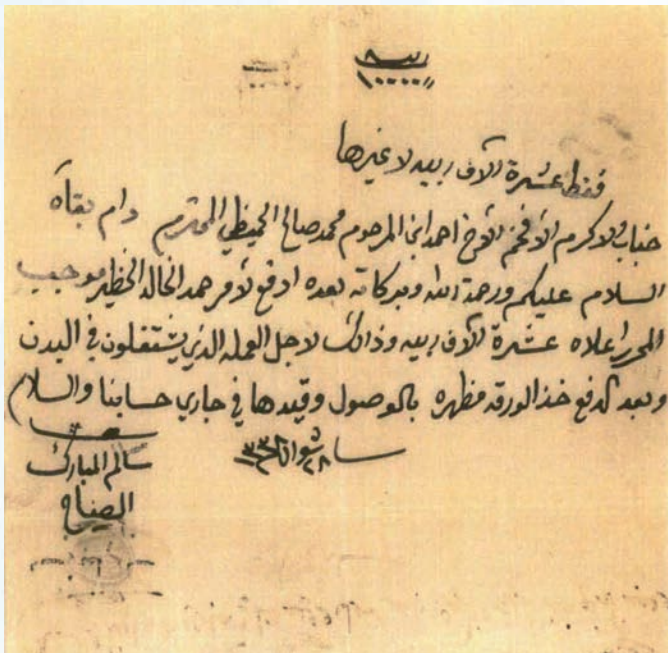 ربيه
١٠٠٠٠
فقط عشرة آلاف ربيه لا غيرها
جناب الاكرم الأفخم الأخ احمد ابن المرحوم محمد صالح الحميضي المحترم دام بقاه
السلام عليكم ورحمة الله وبركاته بعده ادفع لأمر حمد الخالد الخظير موجب
المحرر اعلاه عشرة آلاف ربيه وذالك لاجل العمله الذي يشتغلون في البدن
وبعد الدفع خذ الورقه مظهره بالوصول وقيدها في جاري حسابنا والسلام
٢٨ شوال ١٣٣٨
سالم المبارك
الصباح